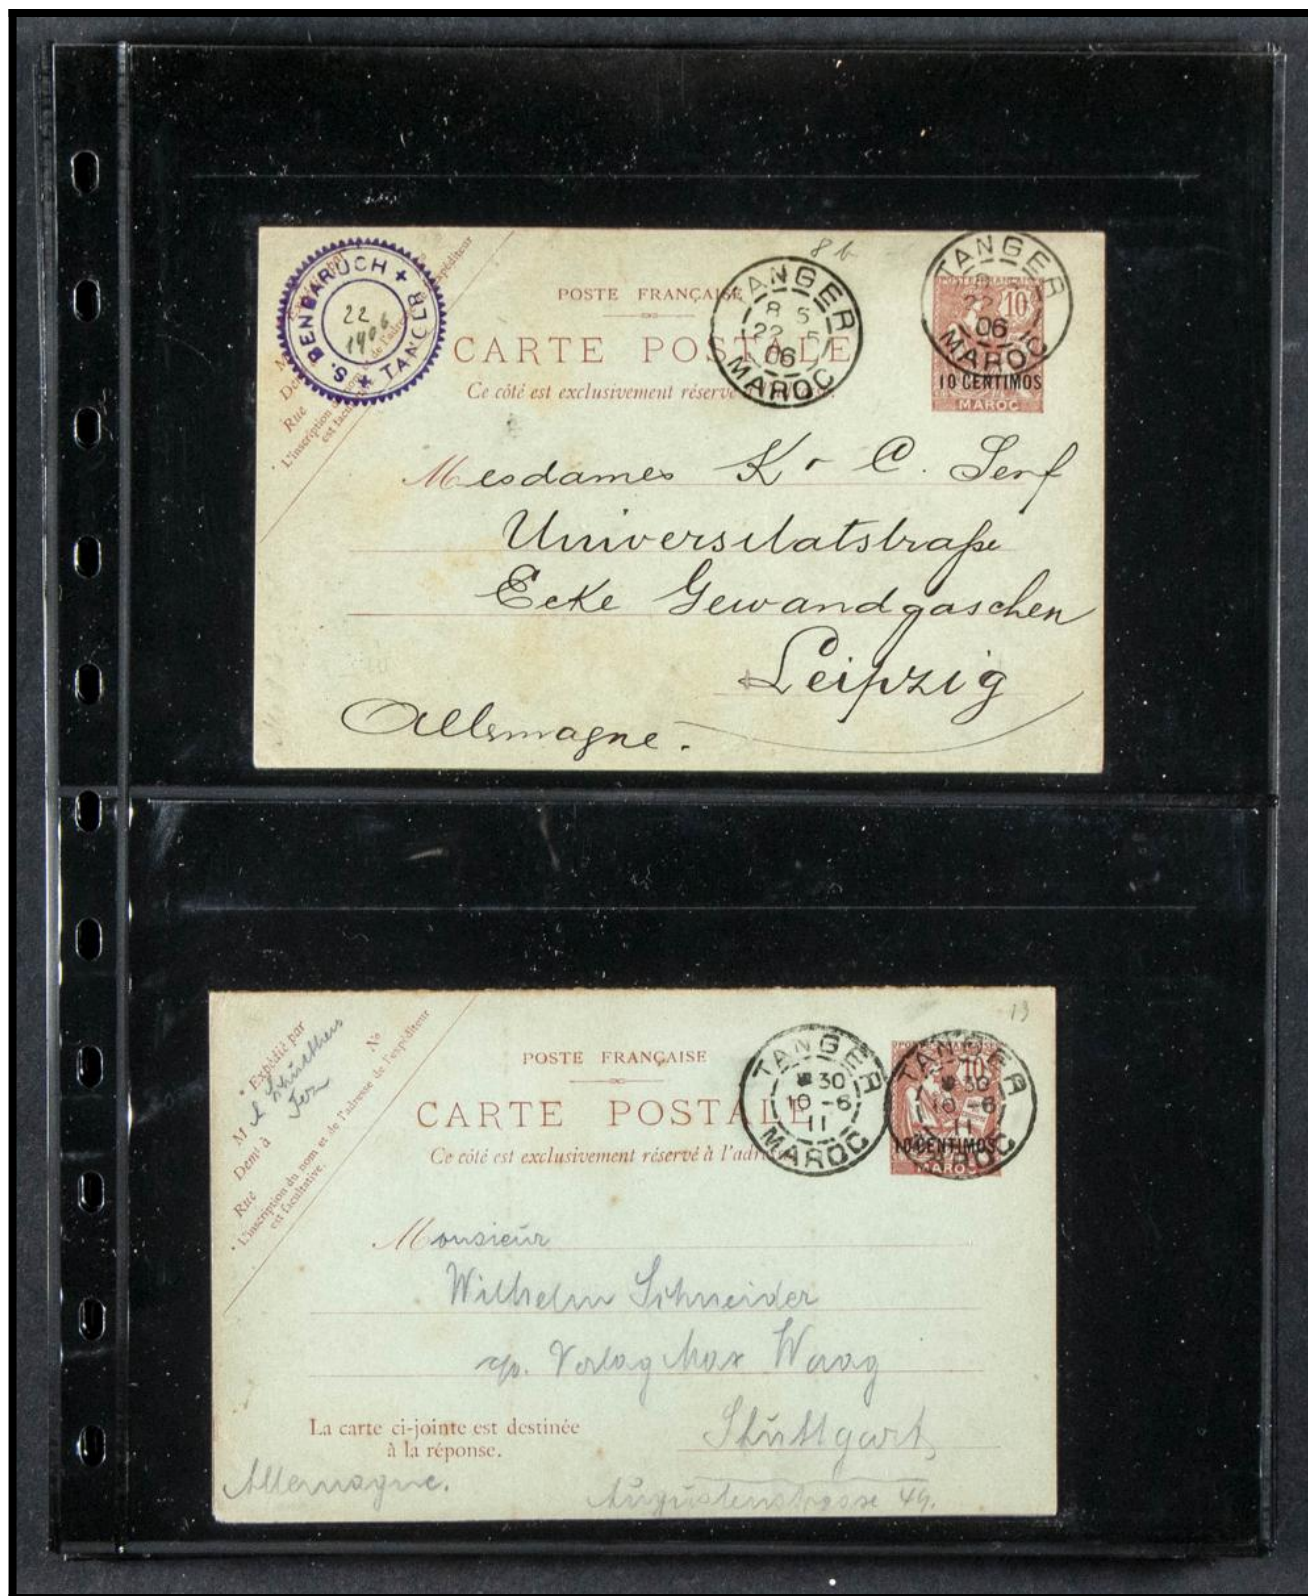 S. BENBARUCH + TANGER
22
1906
de l'expéditeur
Rue
L'inscription
est facultative
8 b
POSTE FRANÇAISE
CARTE POSTALE
Ce côté est exclusivement réservé
TANGER
8 5
22 5
06
MAROC
TANGER
22
06
MAROC
10
10 CENTIMOS
MAROC
Mesdames K & C. Serf
Universitatstraße
Ecke Gewandgaschen
Leipzig
Allemagne.
13
Expédié par
M
Fez
Demt à
Rue
No
L'inscription du nom et de l'adresse de l'expéditeur
est facultative.
POSTE FRANÇAISE
CARTE POSTALE
Ce côté est exclusivement réservé à l'adresse
TANGER
30
10 -6
11
MAROC
TANGER
30
10 -6
11
MAROC
10
10 CENTIMOS
MAROC
Monsieur
Wilhelm Schneider
Verlag Max Waag
La carte ci-jointe est destinée
à la réponse.
Stuttgart
Allemagne.
Augustenstrasse 49.